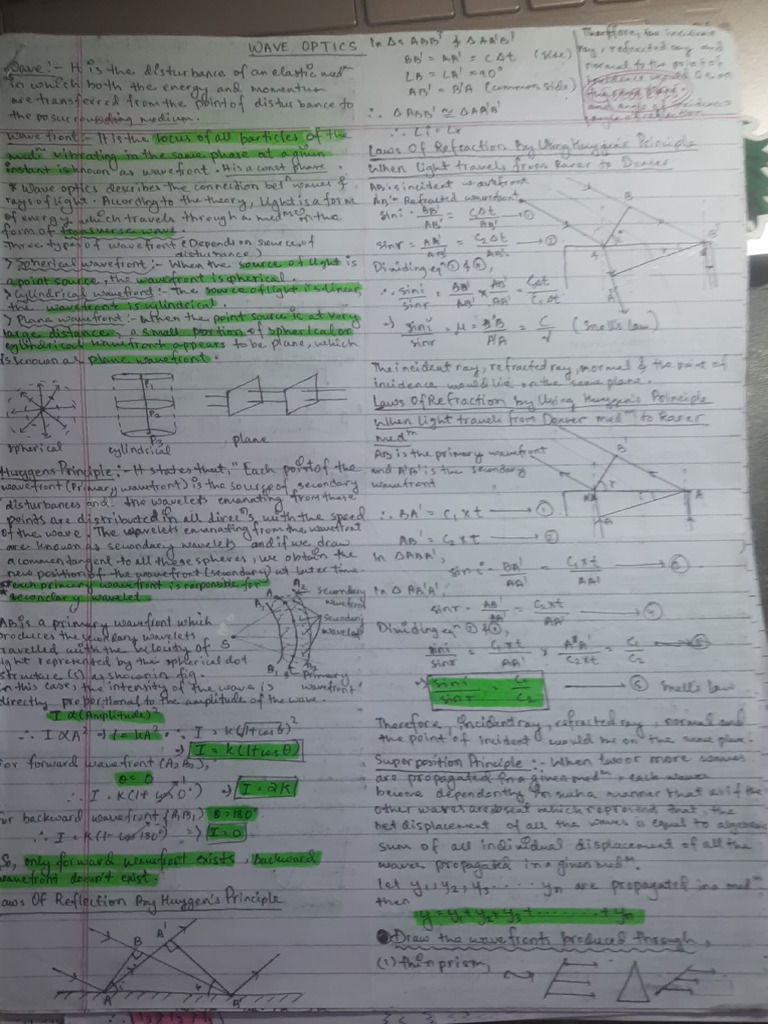 WAVE OPTICS
Wave :- It is the disturbance of an elastic medm
in which both the energy and momentum
are transferred from the point of disturbance to
the surrounding medium.
Wavefront :- It is the locus of all particles of the
medm vibrating in the same phase at a given
instant is known as wavefront. It is a const phase.
* Wave optics describes the connection betn waves &
rays of light. According to the theory, light is a form
of energy which travels through a medm in the
form of transverse wave.
Three types of wavefront (Depends on source of
disturbance)
> Spherical wavefront :- When the source of light is
a point source, the wavefront is spherical.
> Cylindrical wavefront :- The source of light is linear,
the wavefront is cylindrical.
> Plane wavefront :- When the point source is at very
large distance, a small portion of spherical or
cylindrical wavefront appears to be plane, which
is known as plane wavefront.
P1
P2
P3
spherical cylindrical plane
Huygens Principle :- It states that, "Each point of the
wavefront (Primary wavefront) is the source of secondary
disturbances and the wavelets emanating from these
points are distributed in all direcn's with the speed
of the wave. The wavelets emanating from the wavefront
are known as secondary wavelets and if we draw
a common tangent to all these spheres, we obtain the
new position of the wavefront (secondary) at later time.
* each primary wavefront is responsible for
secondary wavelet
AB is a primary wavefront which
produces the secondary wavelets
travelled with the velocity of
light represented by the spherical dot
structure (S) as shown in fig.
In this case, the intensity of the wave is
directly proportional to the amplitude of the wave.
secondary wavefront
secondary wavelet
Primary wavefront
I ∝ (Amplitude)²
∴ I ∝ A² ⇒ I = kA² ∴ I = k(1+cosθ)²
⇒ I = k(1+cosθ)
For forward wavefront (A2B2),
θ = 0
∴ I = k(1+cos0°) ⇒ I = 2k
For backward wavefront (A1B1) θ = 180°
∴ I = k(1+cos180°) ⇒ I = 0
So, only forward wavefront exists, backward
wavefront doesn't exist.
Laws Of Reflection By Huygen's Principle
A B A' B'
In Δs ABB' & ΔAA'B'
BB' = AA' = CΔt (side)
∠B = ∠A' = 90°
AB' = B'A (common side)
∴ ΔABB' ≅ ΔAA'B'
∴ ∠i = ∠r
Therefore, the incident
ray, refracted ray and
normal to the point of
incidence would lie on
the same plane
and angle of incidence
Laws Of Refraction By Using Huygen's Principle
When Light travels from Rarer to Denser
AB = incident wavefront
A'B' = Refracted wavefront
sini = BB'/AB' = C1Δt/AB' → ①
sinr = AA'/AB' = C2Δt/AB' → ②
Dividing eqn ① & ②,
∴ sini/sinr = BB'/AB' × AB'/AA' = C1Δt/C2Δt
⇒ sini/sinr = μ = B'B/A'A = C/v (Snell's law)
The incident ray, refracted ray, normal & the point of
incidence would lie on the same plane.
Laws Of Refraction By Using Huygen's Principle
When Light travels from Denser medm to Rarer
medm
AB is the primary wavefront
and A'B' is the secondary
wavefront
∴ BA' = C1 × t → ①
AB' = C2 × t → ②
In ΔABA',
sini = BA'/AA' = C1×t/AA' → ③
In ΔAB'A',
sinr = AB'/AA' = C2×t/AA' → ④
Dividing eqn ③ & ④,
sini/sinr = C1×t/AA' × AA'/C2×t = C1/C2 → ⑤
⇒ sini/sinr = C1/C2 → ⑥ Snell's Law
Therefore, incident ray, refracted ray, normal and
the point of incident would lie on the same plane.
Superposition Principle :- When two or more waves
are propagated in a given medm, each wave
become dependently in such a manner that as if the
other waves are absent which represent that, the
net displacement of all the waves is equal to algebraic
sum of all individual displacement of all the
waves propagated in a given medm.
Let y1, y2, y3 ..... yn are propagated in a medm
then
y = y1 + y2 + y3 + .......... + yn
Draw the wavefronts produced through,
(1) thin prism,